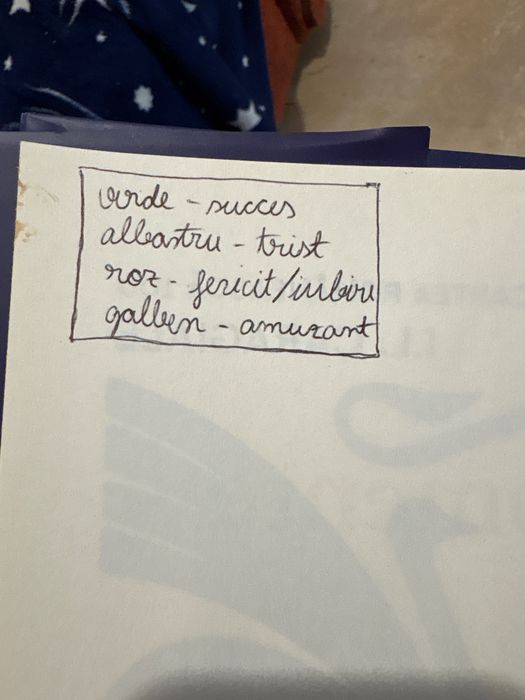 verde - succes
albastru - trist
roz - fericit/iubire
galben - amuzant